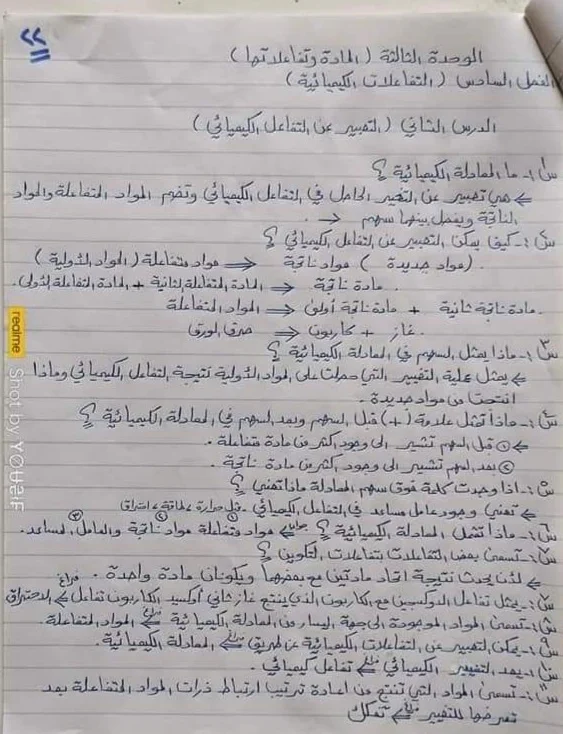 ٢٢
الوحدة الثالثة (المادة وتفاعلاتها)
الفصل السادس (التفاعلات الكيميائية)
الدرس الثاني (التعبير عن التفاعل الكيميائي)
س١:- ما المعادلة الكيميائية ؟
هي تعبير عن التغير الحاصل في التفاعل الكيميائي وتضم المواد المتفاعلة والمواد
الناتجة ويفصل بينها سهم →.
س٢:- كيف يمكن التعبير عن التفاعل الكيميائي ؟
(مواد جديدة) مواد ناتجة ⇐ مواد متفاعلة (المواد الأولية)
مادة ناتجة. ⇐ المادة المتفاعلة الثانية + المادة المتفاعلة الأولى.
مادة ناتجة ثانية + مادة ناتجة أولى ⇐ المواد المتفاعلة
غاز + كاربون ⇐ حرق الورق
س٣:- ماذا يمثل السهم في المعادلة الكيميائية ؟
يمثل عملية التغيير التي حصلت على المواد الأولية نتيجة التفاعل الكيميائي وماذا
انتجت من مواد جديدة.
س٤:- ماذا تمثل علامة (+) قبل السهم وبعد السهم في المعادلة الكيميائية ؟
① قبل السهم تشير الى وجود اكثر من مادة متفاعلة.
② بعد السهم تشير الى وجود اكثر من مادة ناتجة.
س٥:- اذا وجدت كلمة فوق سهم المعادلة ماذا تعني ؟
تعني وجود عامل مساعد في التفاعل الكيميائي. حرارة، طاقة، احتراق
س٦:- ماذا تشمل المعادلة الكيميائية ؟ مواد متفاعلة مواد ناتجة والعامل المساعد.
س٧:- تسمى بعض التفاعلات بتفاعلات التكوين ؟
لأن يحدث نتيجة اتحاد مادتين مع بعضها ويكونان مادة واحدة.
س٨:- يمثل تفاعل الاوكسجين مع الكاربون الذي ينتج غاز ثاني أوكسيد الكاربون تفاعل فراغ الاحتراق
تسمى المواد الموجودة الى جهة اليسار من المعادلة الكيميائية فراغ المواد المتفاعلة.
يمكن التعبير عن التفاعلات الكيميائية عن طريق فراغ المعادلة الكيميائية.
يعد التغيير الكيميائي فراغ تفاعل كيميائي.
تسمى المواد التي تنتج من اعادة ترتيب ارتباط ذرات المواد المتفاعلة بعد
تعرضها للتغيير فراغ
realme
Shot by YOUSIF